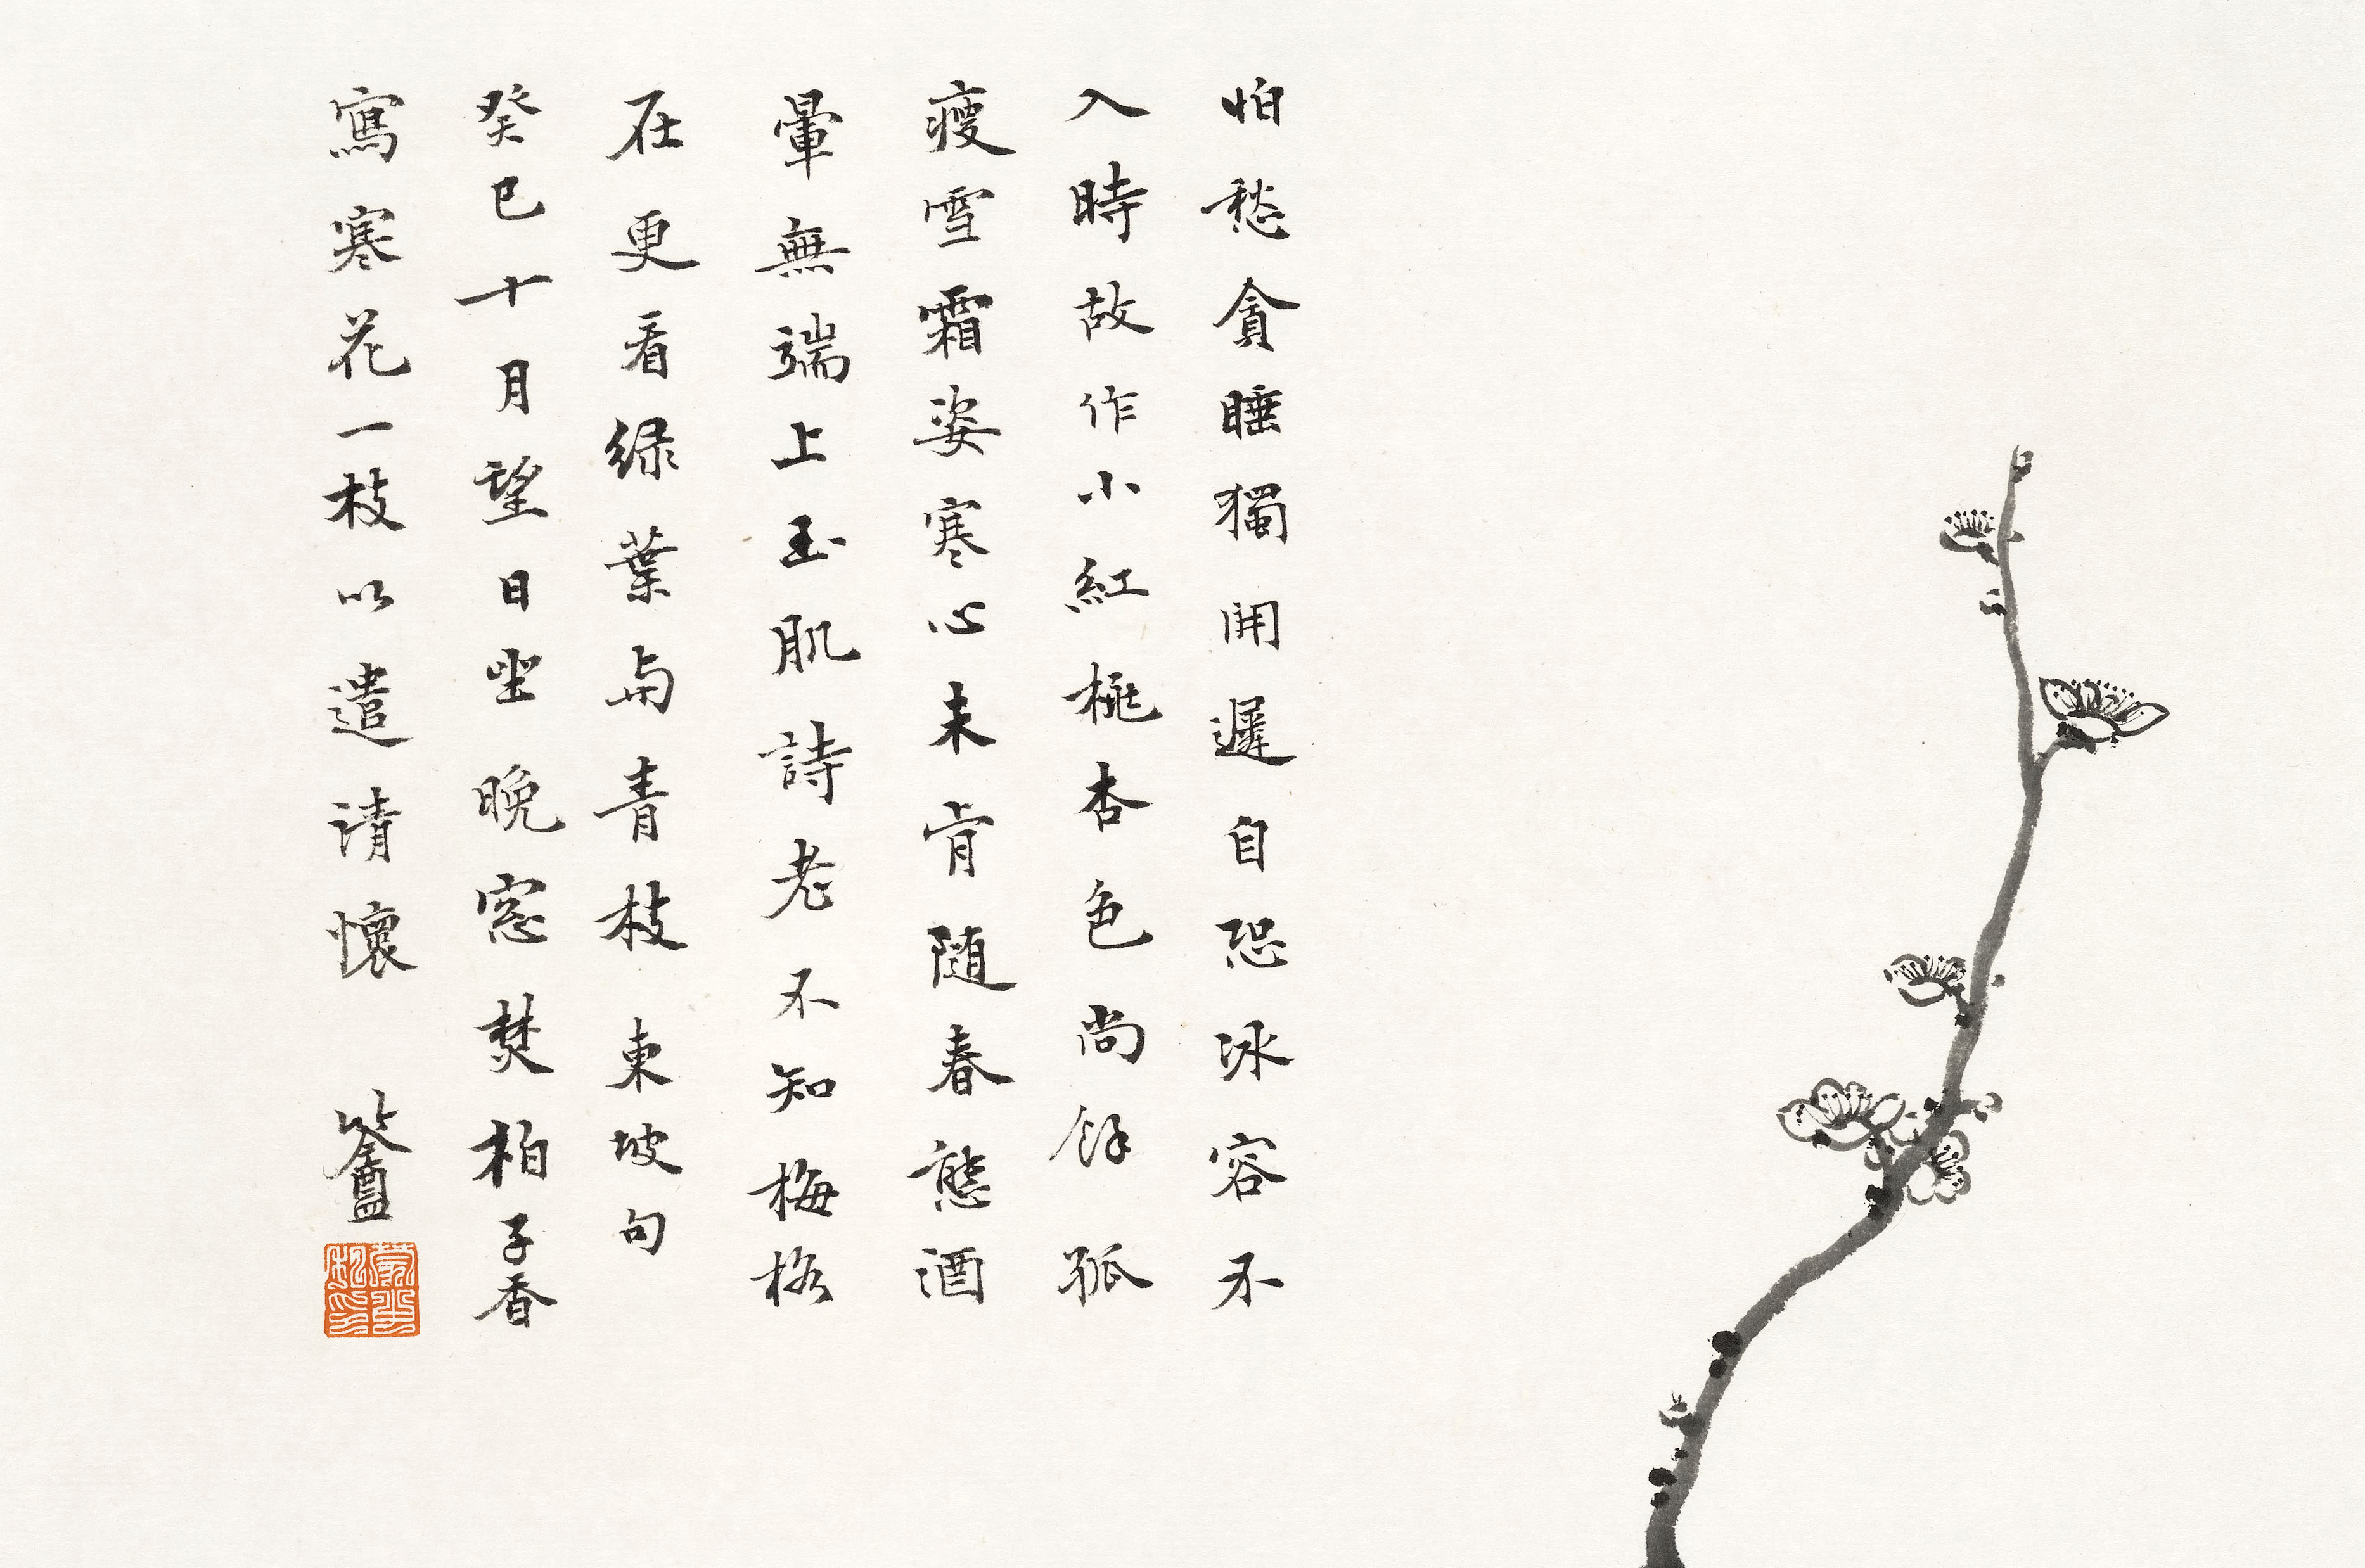 怕愁貪睡獨開遲自恐冰容不
入時故作小紅桃杏色尚餘孤
瘦雪霜姿寒心未肯随春態酒
暈無端上玉肌詩老不知梅格
在更看绿葉与青枝東坡句
癸巳十月望日坐晚窓焚柏子香
寫寒花一枝以遣清懷 簦盦